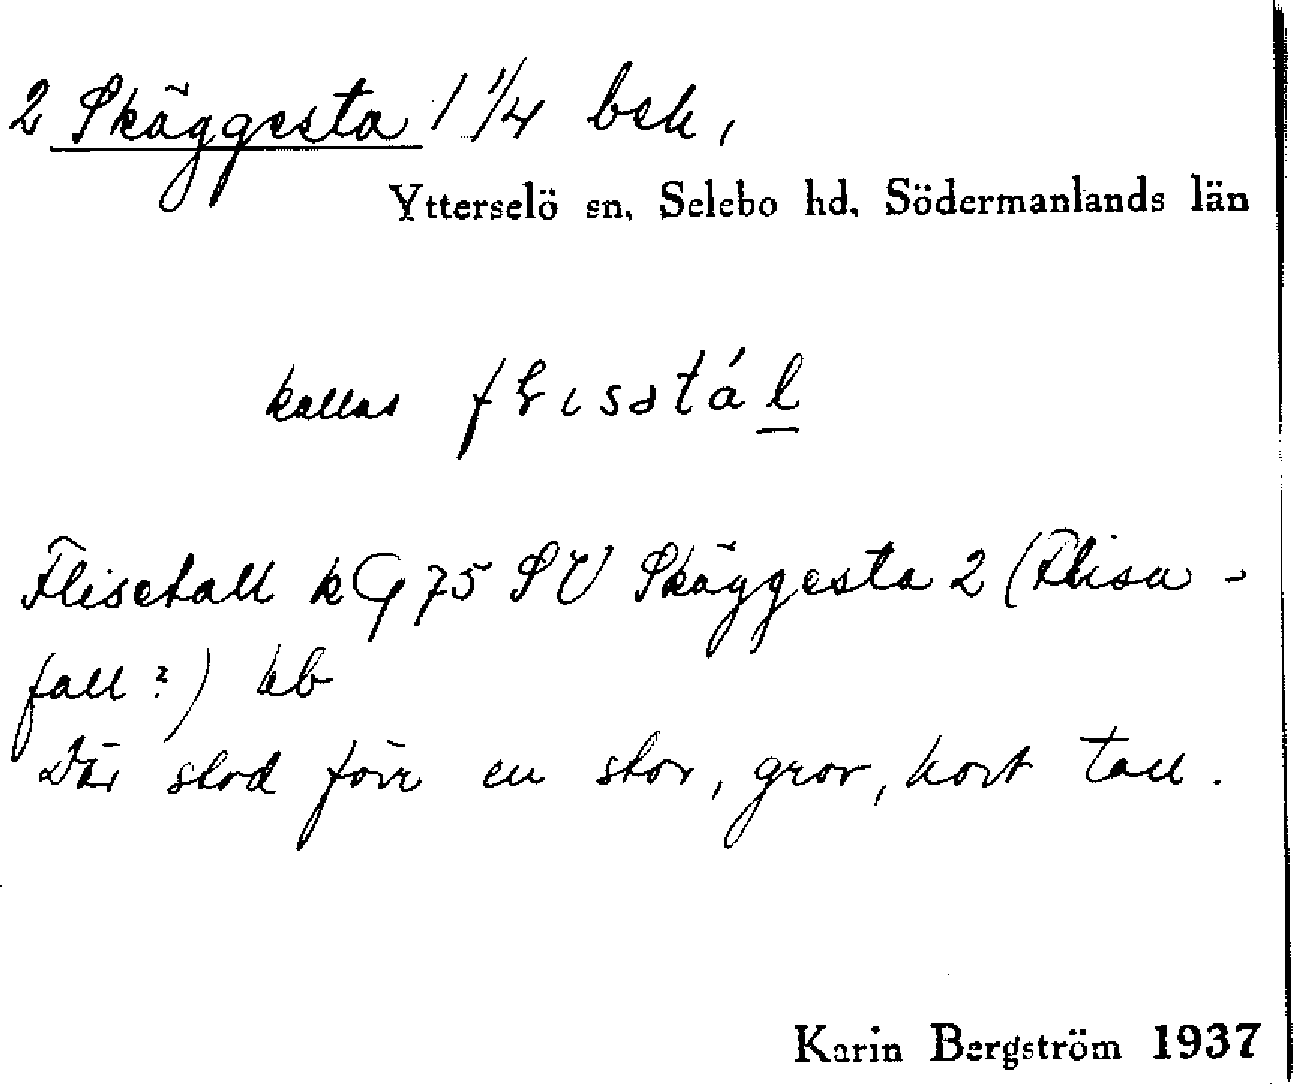 2 Skäggesta 1 1/4 bsk,
Ytterselö sn, Selebo hd, Södermanlands län
kallas
Flisetall k G 75 SV Skäggesta 2 (Flisa-
fall?) kb
Där stod förr en stor, grov, kort tall.
Karin Bergström 1937